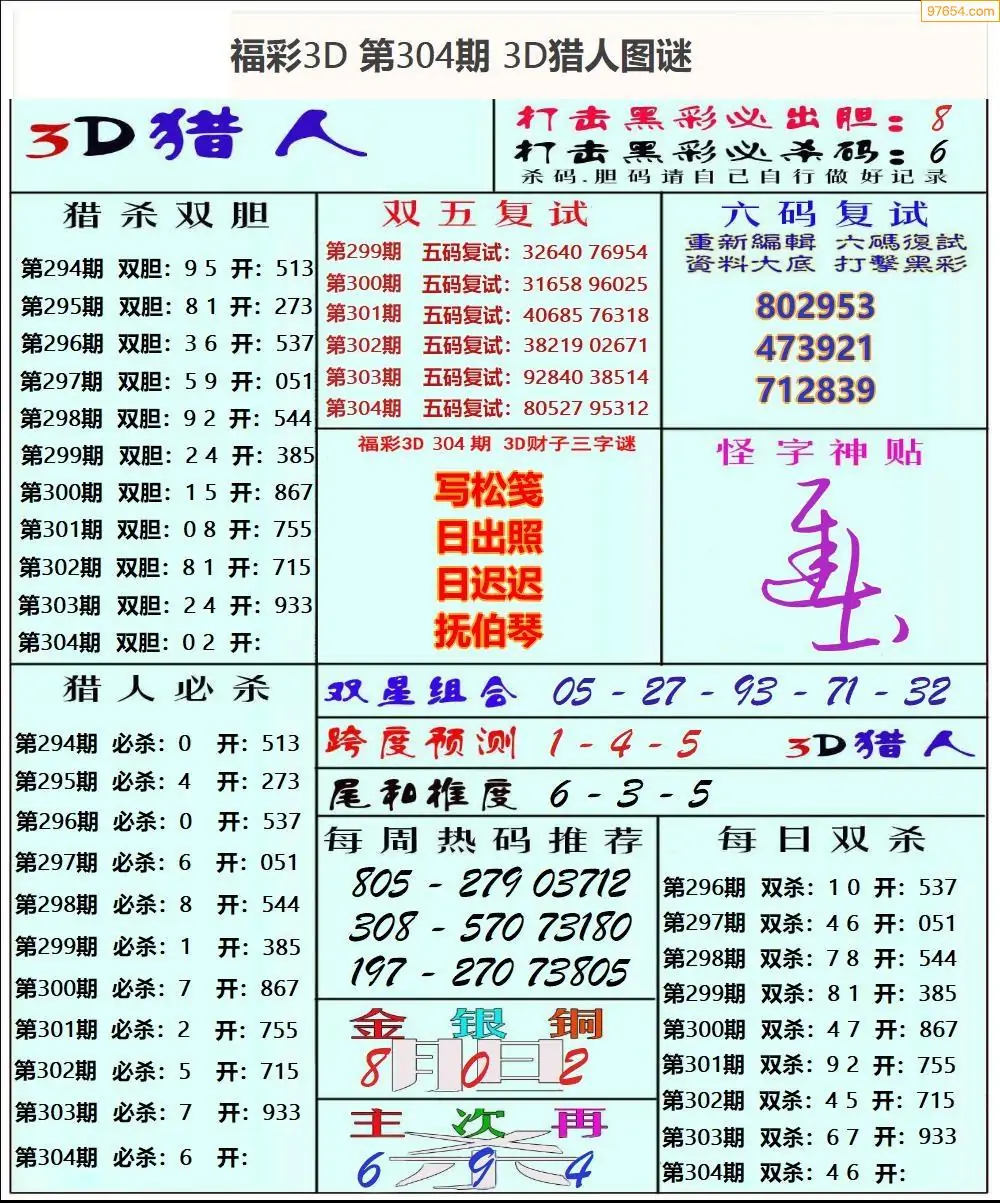 97654.com
福彩3D 第304期 3D猎人图谜
3D猎人
打击黑彩必出胆：8
打击黑彩必杀码：6
杀码.胆码请自己自行做好记录
猎杀双胆
第294期 双胆：9 5 开：513
第295期 双胆：8 1 开：273
第296期 双胆：3 6 开：537
第297期 双胆：5 9 开：051
第298期 双胆：9 2 开：544
第299期 双胆：2 4 开：385
第300期 双胆：1 5 开：867
第301期 双胆：0 8 开：755
第302期 双胆：8 1 开：715
第303期 双胆：2 4 开：933
第304期 双胆：0 2 开：
双五复试
第299期 五码复试：32640 76954
第300期 五码复试：31658 96025
第301期 五码复试：40685 76318
第302期 五码复试：38219 02671
第303期 五码复试：92840 38514
第304期 五码复试：80527 95312
六码复试
重新編輯 六碼復試
資料大底 打擊黑彩
802953
473921
712839
福彩3D 304期 3D财子三字谜
写松笺
日出照
日迟迟
抚伯琴
怪字神贴
猎人必杀
第294期 必杀：0 开：513
第295期 必杀：4 开：273
第296期 必杀：0 开：537
第297期 必杀：6 开：051
第298期 必杀：8 开：544
第299期 必杀：1 开：385
第300期 必杀：7 开：867
第301期 必杀：2 开：755
第302期 必杀：5 开：715
第303期 必杀：7 开：933
第304期 必杀：6 开：
双星组合 05 - 27 - 93 - 71 - 32
跨度预测 1 - 4 - 5 3D猎人
尾和推度 6 - 3 - 5
每周热码推荐
805 - 279 03712
308 - 570 73180
197 - 270 73805
金银铜
胆
8 0 2
主次再
杀
6 9 4
每日双杀
第296期 双杀：1 0 开：537
第297期 双杀：4 6 开：051
第298期 双杀：7 8 开：544
第299期 双杀：8 1 开：385
第300期 双杀：4 7 开：867
第301期 双杀：9 2 开：755
第302期 双杀：4 5 开：715
第303期 双杀：6 7 开：933
第304期 双杀：4 6 开：